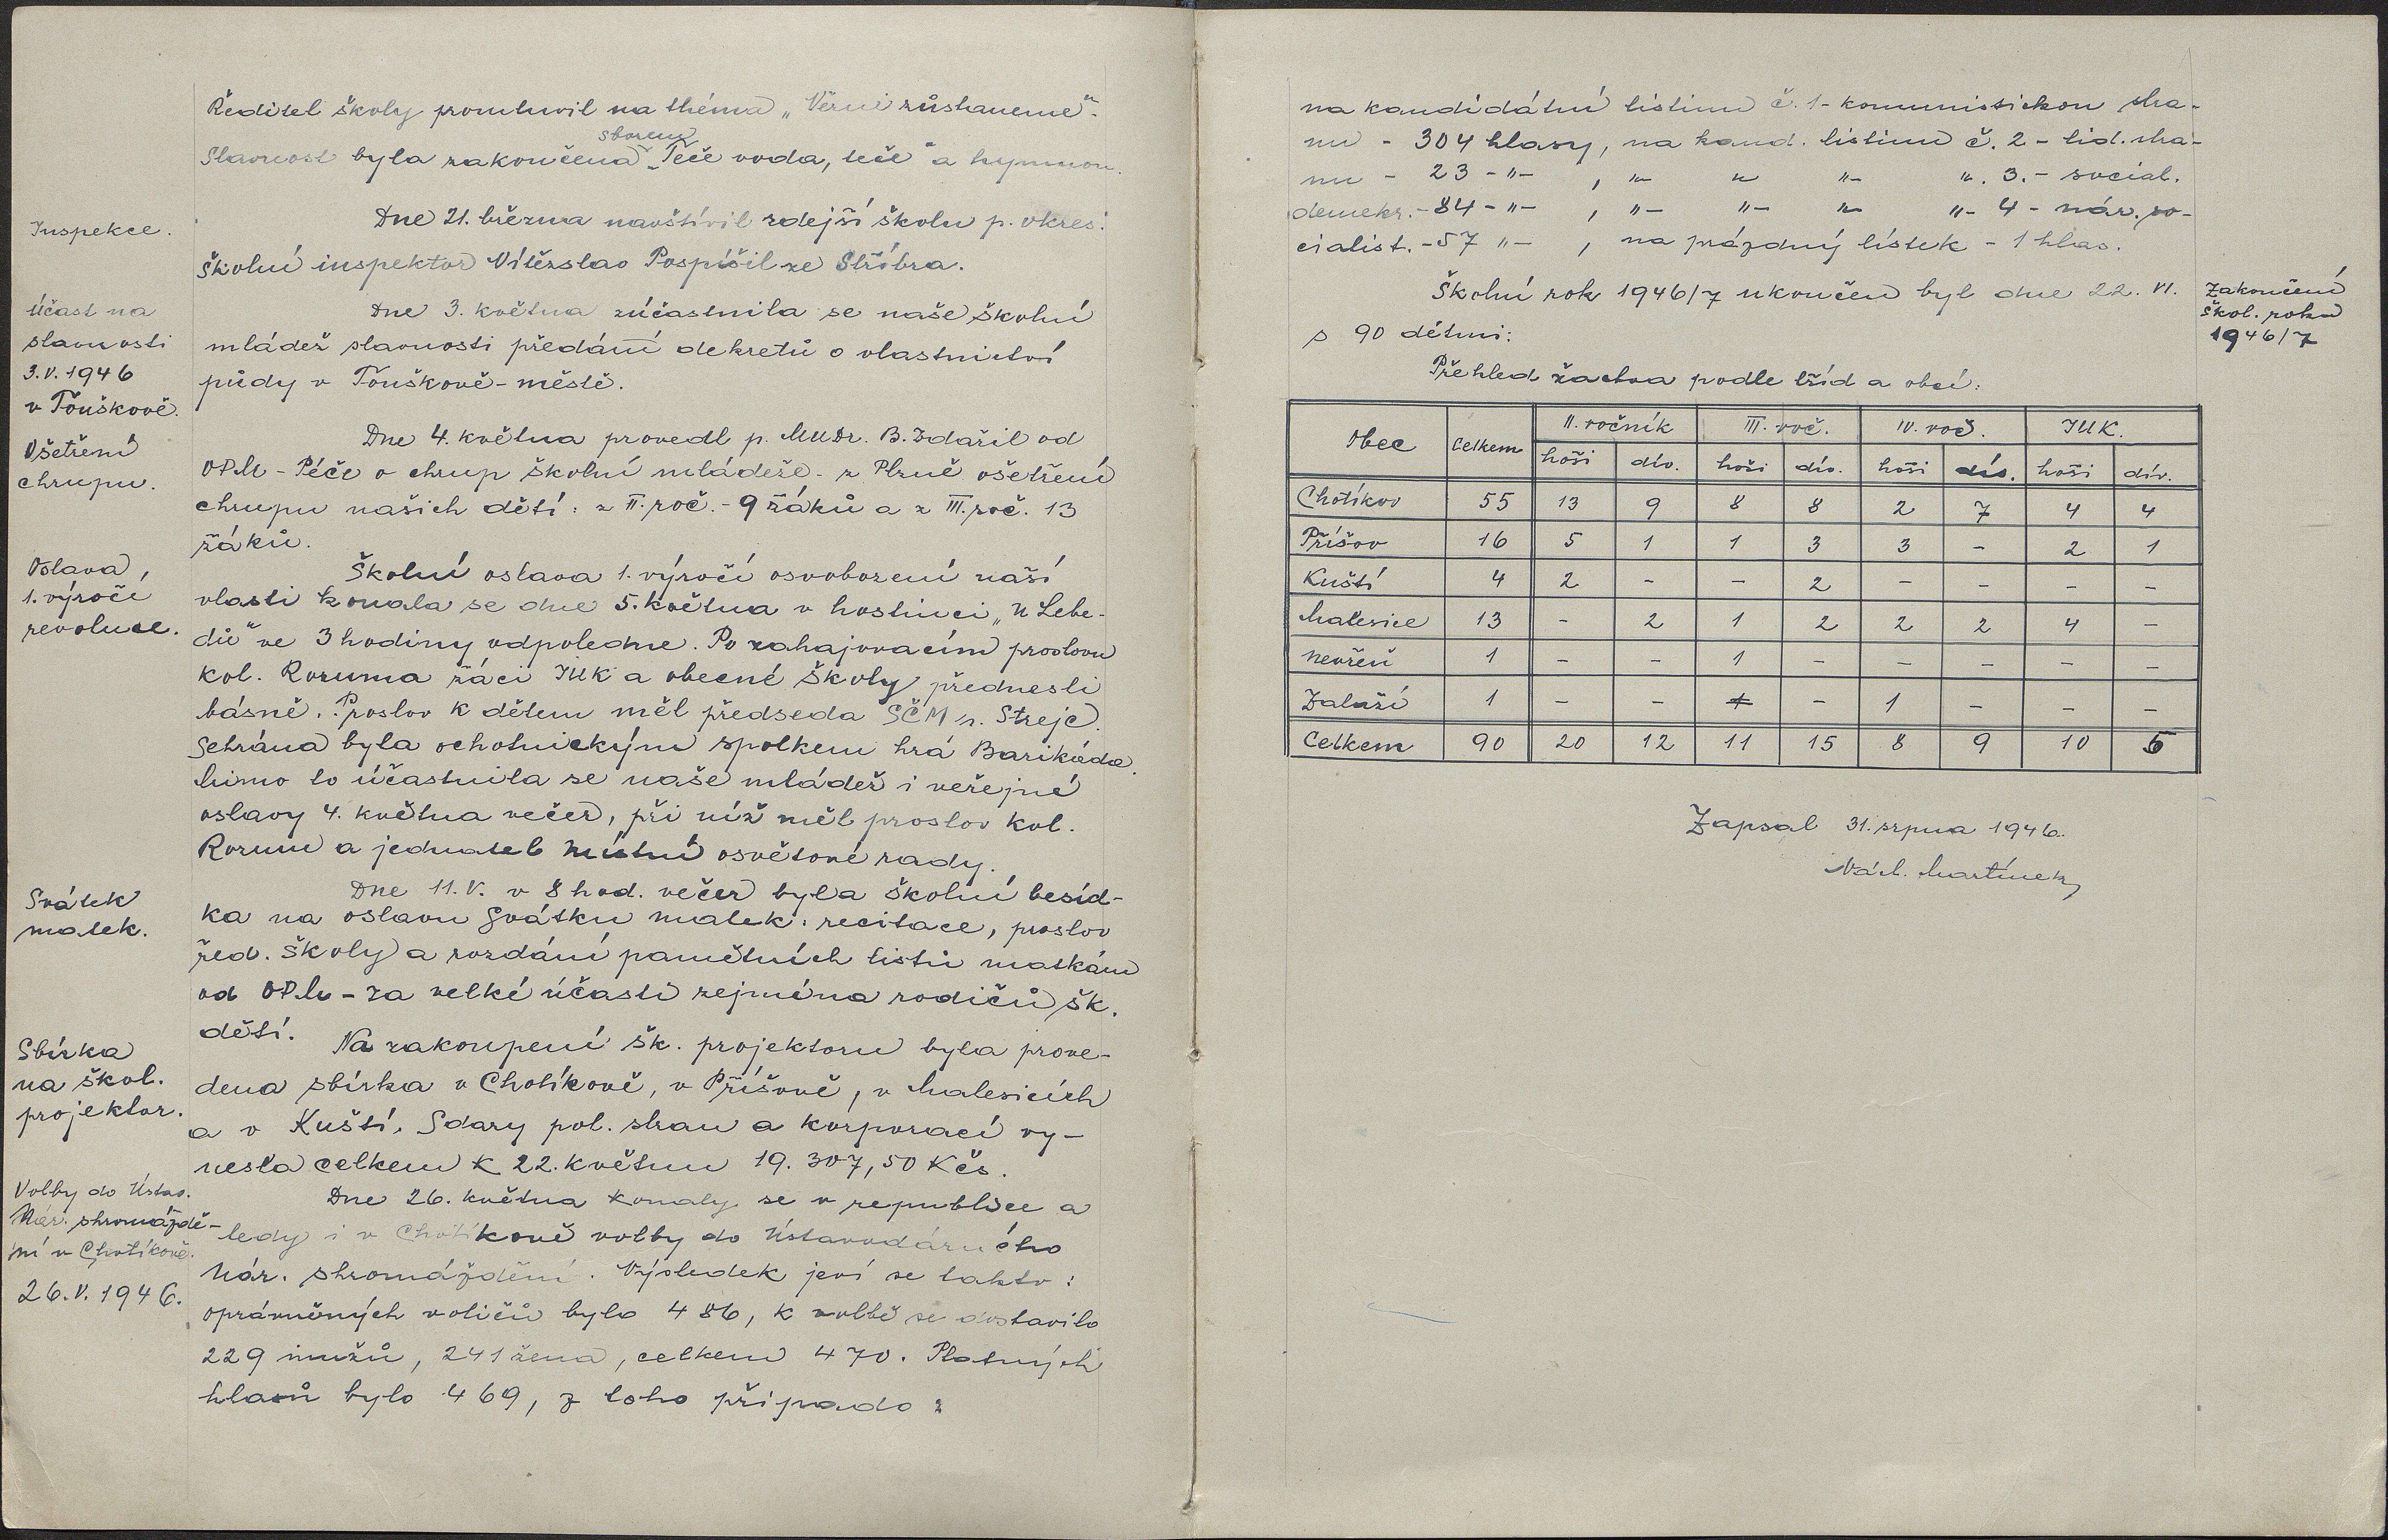 Ředitel školy promluvil na théma „Věrni zůstaneme“.
sborem
Slavnost byla zakončena „Teče voda, teče“ a hymnou.
Inspekce.
Dne 21. března navštívil zdejší školu p. okres.
školní inspektor Vítězslav Pospíšil ze Stříbra.
Účast na
slavnosti
3. V. 1946
v Touškově.
Dne 3. května zúčastnila se naše školní
mládež slavnosti předání dekretů o vlastnictví
půdy v Touškově-městě.
Ošetření
chrupu.
Dne 4. května provedl p. MUDr. B. Zdařil od
OPM - Péče o chrup školní mládeže - z Plzně ošetření
chrupu našich dětí: z II. roč. - 9 žáků a z III. roč. 13
žáků.
Oslava
1. výročí
revoluce.
Školní oslava 1. výročí osvobození naší
vlasti konala se dne 5. května v hostinci „U Lebe-
dů“ ve 3 hodiny odpoledne. Po zahajovacím proslovu
kol. Rozuma žáci IUK a obecné školy přednesli
básně. Proslov k dětem měl předseda SČM p. Strejc.
Sehrána byla ochotnickým spolkem hra Barikáda.
Mimo to účastnila se naše mládež i veřejné
oslavy 4. května večer, při níž měl proslov kol.
Rozum a jednatel místní osvětové rady.
Svátek
matek.
Dne 11. V. v 8 hod. večer byla školní besíd-
ka na oslavu Svátku matek: recitace, proslov
řed. školy a rozdání pamětních listů matkám
od OPM - za velké účasti zejména rodičů šk.
dětí.
Sbírka
na škol.
projektor.
Na zakoupení šk. projektoru byla prove-
dena sbírka v Chotíkově, v Příšově, v Malesicích
a v Kuští. S dary pol. stran a korporací vy-
nesla celkem k 22. květnu 19.307,50 Kčs.
Volby do Ústav.
Nár. shromáždě-
ní v Chotíkově.
26. V. 1946.
Dne 26. května konaly se v republice a
tedy i v Chotíkově volby do Ústavodárného
Nár. shromáždění. Výsledek jeví se takto:
oprávněných voličů bylo 486, k volbě se dostavilo
229 mužů, 241 žena, celkem 470. Platných
hlasů bylo 469, z toho připado:
na kandidátní listinu č. 1 - komunistickou stra-
nu - 304 hlasy, na kand. listinu č. 2 - lid. stra-
nu - 23 - " - , " - " " - " . 3. - social.
demokr. - 84 - " - , " - " - " - " - 4 - nár. so-
cialist. - 57 " - , na prázdný lístek - 1 hlas.
Školní rok 1946/7 ukončen byl dne 22. VI.
s 90 dětmi:
Zakončení
škol. roku
1946/7
Přehled žactva podle tříd a obcí:
Obec Celkem II. ročník III. roč. IV. roč. IUK.
hoši dív. hoši dív. hoši dív. hoši dív.
Chotíkov 55 13 9 8 8 2 7 4 4
Příšov 16 5 1 1 3 3 - 2 1
Kuští 4 2 - - 2 - - - -
Malesice 13 - 2 1 2 2 2 4 -
Nevřeň 1 - - 1 - - - - -
Zaluží 1 - - - - 1 - - -
Celkem 90 20 12 11 15 8 9 10 5
Zapsal 31. srpna 1946.
Martínek